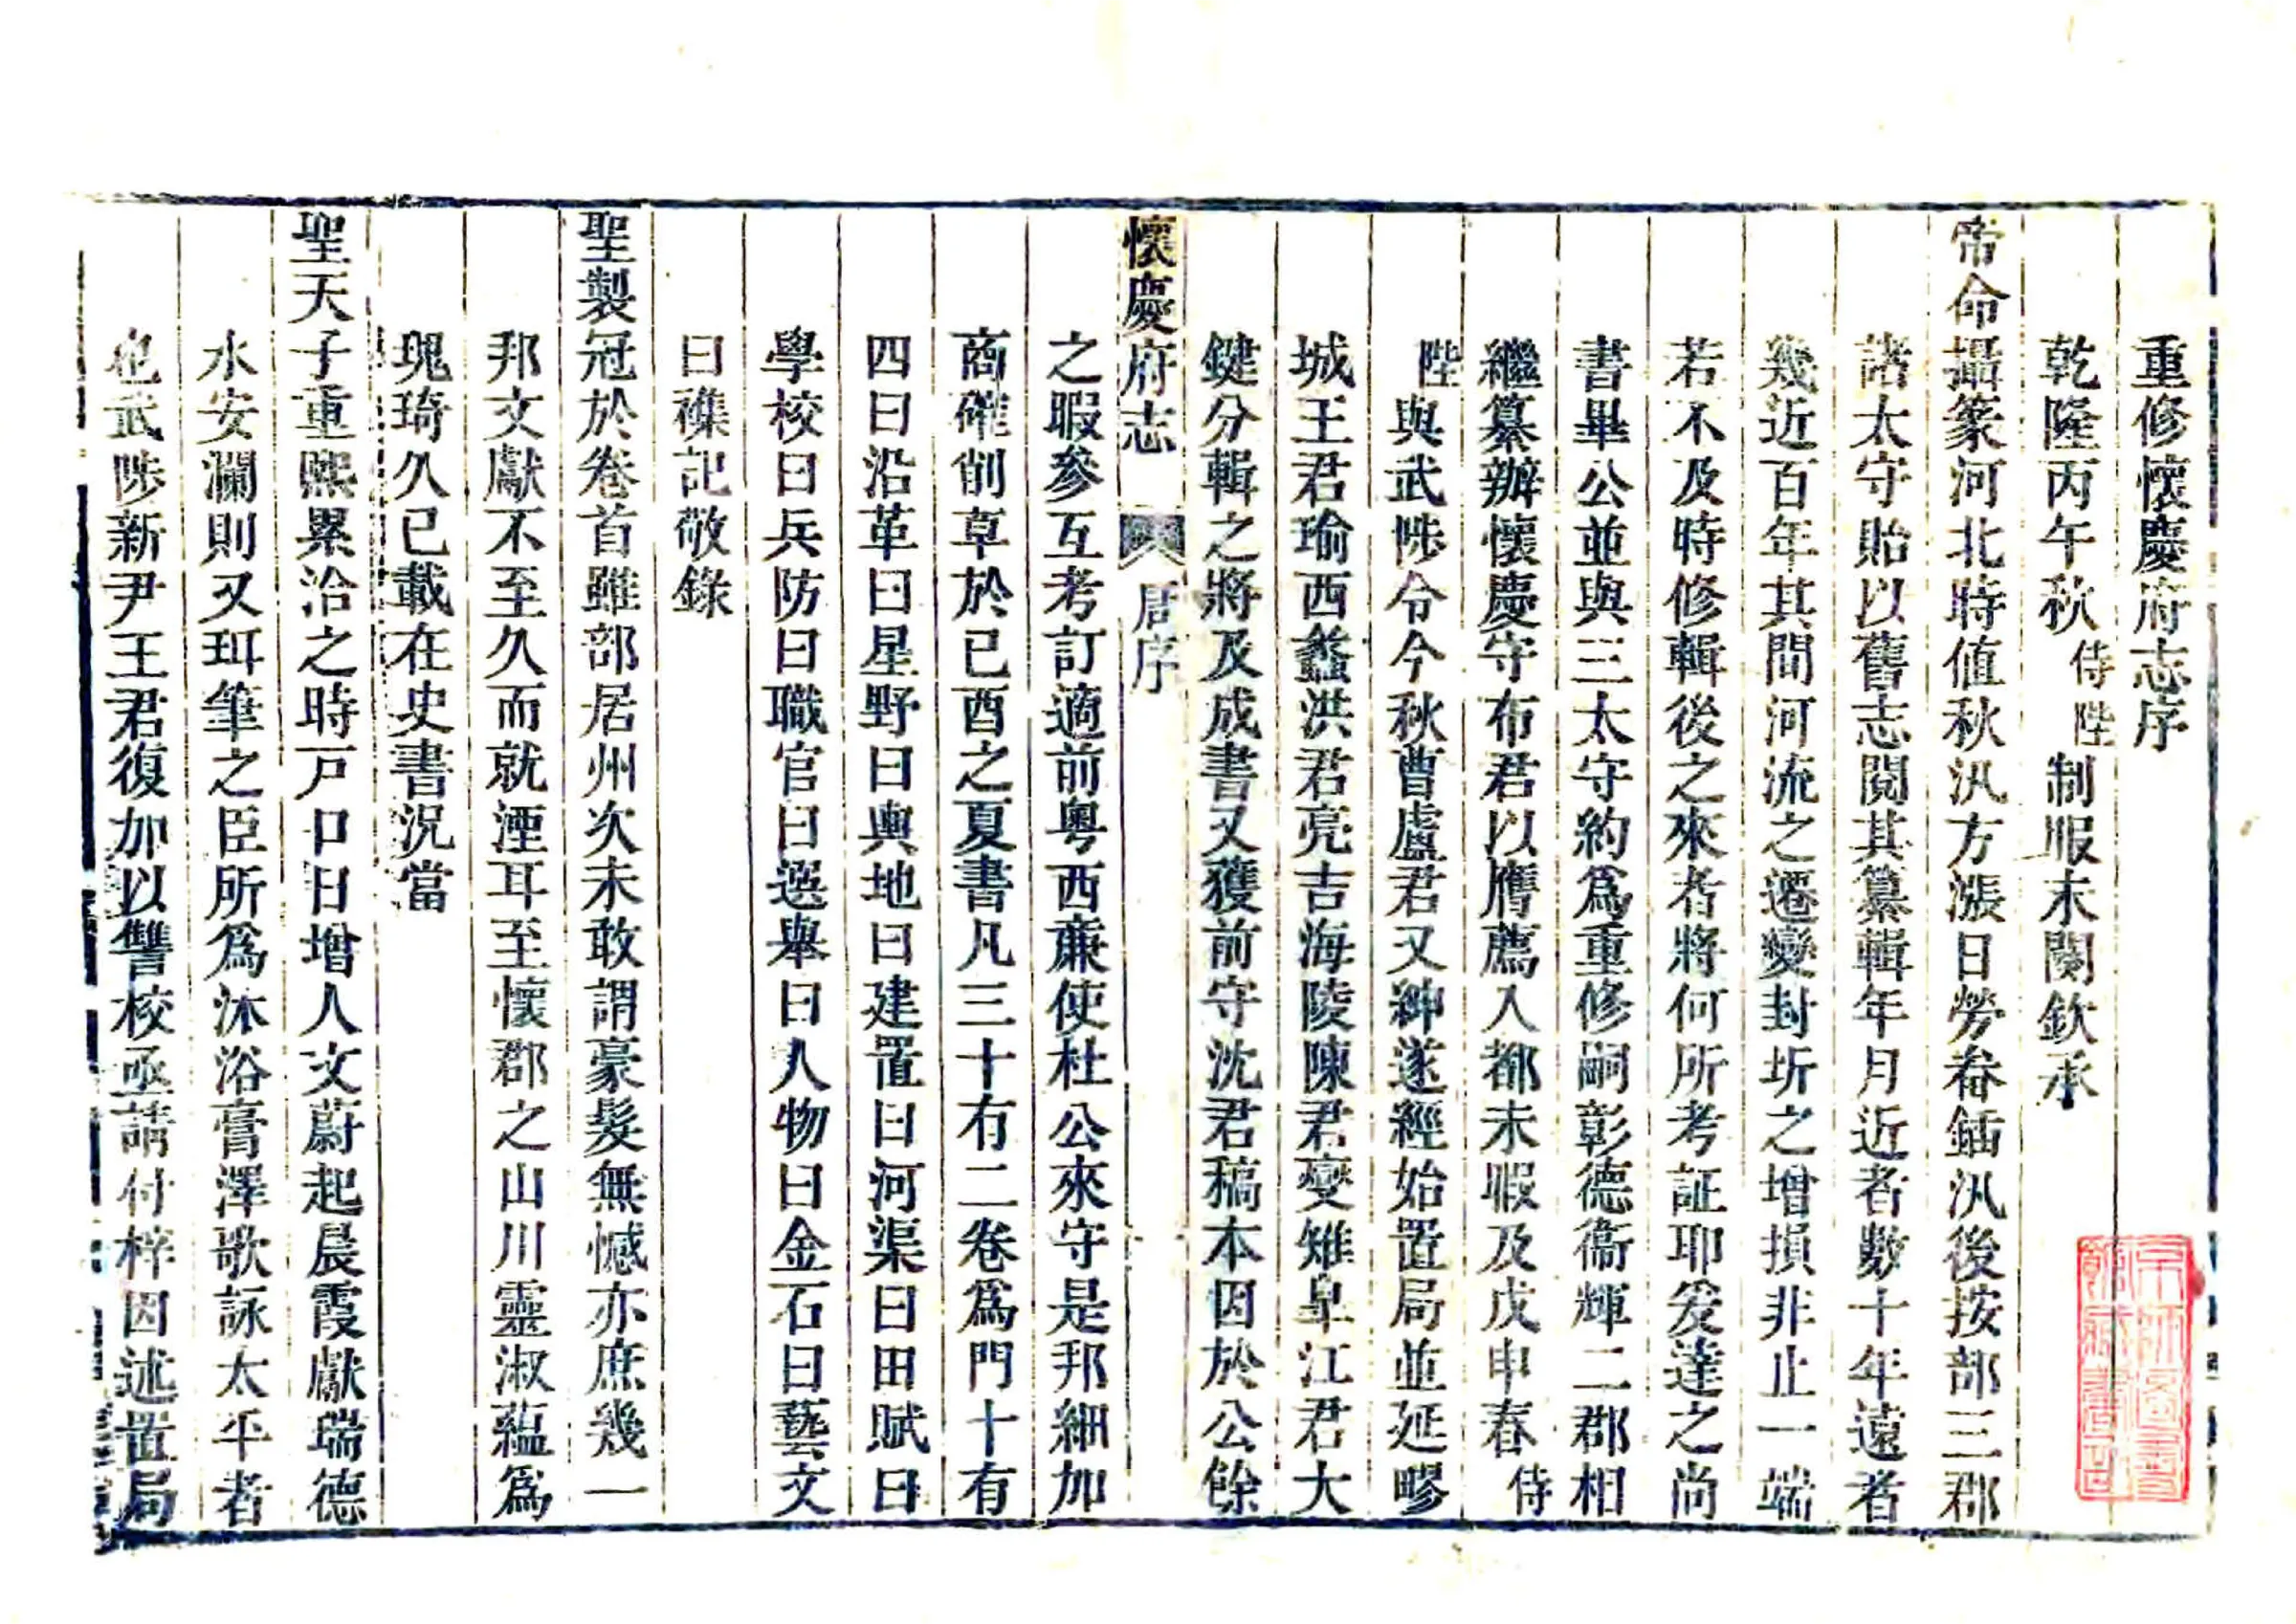 重修懷慶府志序
乾隆丙午秋侍陛制服未闋欽承
帝命攝篆河北時值秋汛方漲日勞畚鍤汛後按部三郡
諸太守貽以舊志閱其纂輯年月近者數十年遠者
幾近百年其間河流之遷變封圻之增損非止一端
若不及時修輯後之來者將何所考証耶爰達之尚
書畢公並與三太守約為重修嗣彰德衞輝二郡相
繼纂辦懷慶守布君以膺薦入都未暇及戊申春侍
陛與武陟令今秋曹盧君又紳遂經始置局並延嘐
城王君瑜西蠡洪君亮吉海陵陳君燮雉皐江君大
鍵分輯之將及成書又獲前守沈君稿本因於公餘
懷慶府志 唐序
之暇參互考訂適前粵西廉使杜公來守是邦細加
商確削草於已酉之夏書凡三十有二卷爲門十有
四曰沿革曰星野曰輿地曰建置曰河渠曰田賦曰
學校曰兵防曰職官曰選舉曰人物曰金石曰藝文
曰襍記敬錄
聖製冠於卷首雖部居州次未敢謂豪髮無憾亦庶幾一
邦文獻不至久而就湮耳至懷郡之山川靈淑蘊爲
瑰琦久已載在史書況當
聖天子重熙累洽之時戸口日增人文蔚起晨霞獻瑞德
水安瀾則又珥筆之臣所爲沐浴膏澤歌詠太平者
也武陟新尹王君復加以讐校亟請付梓因述置局